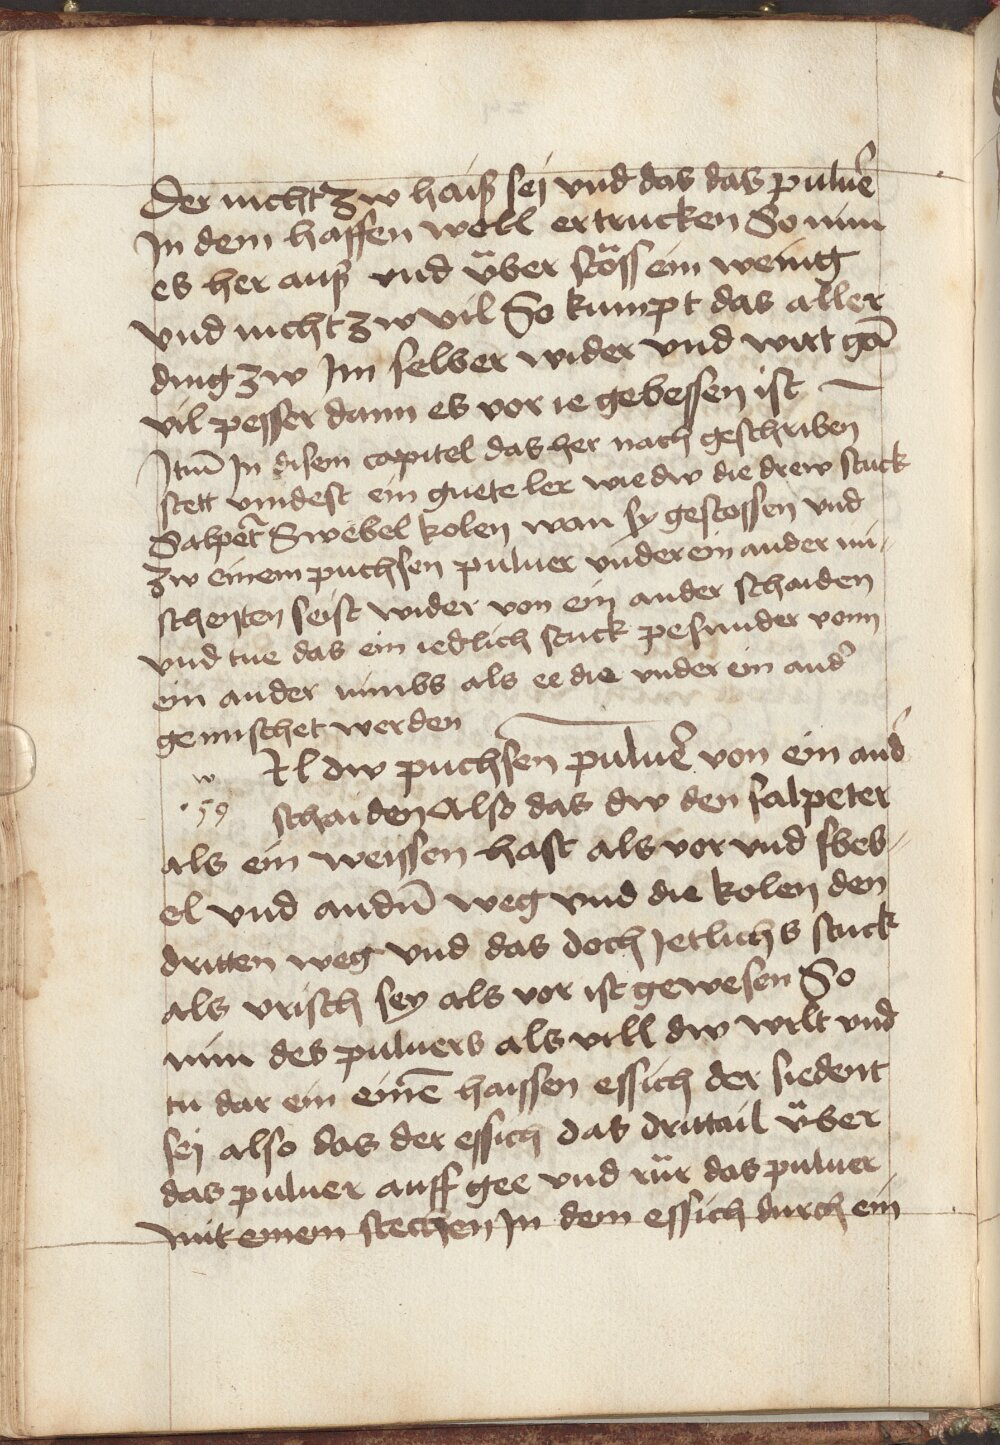 Der nicht zw haiß sej vnd das das puluē
Jn dem haffen woll ertrucken So nim
es her auß vnd v̈ber stöss ein wenig
vnd nicht zw vil So kumpt das aller
ding zw Jm selber wider vnd wirt gā
vil pesser dann es vor ie gebessen ist
Jtm̄ Jn disem capitel das her nach geschriben
stett vindest ein guete ler wie dw die drew stuck
Salpet̄ Swebel kolen wan sy gestossen vnd
zw einem puchsen puluer vnder ein ander mi-
schenten seist wider von ein ander schaiden
vnd tue das ein iedlich stuck pesunder vonn
ein ander nimbs als ee die vnder ein and̄
gemischet werden
dw puchsen puluē von ein and̄
w
·59 schaiden Also das dw den salpeter
als ein weissen hast als vor vnd sbeb-
el vnd andn̄ weg vnd die kolen den
dritten weg vnd das doch Jetlichs stuck
als vrisch sey als vor ist gewesen So
nim des puluers als vill dw wilt vnd
tu dar ein einē haissen essich der siedent
sej also das der essich das drittail v̈ber
das puluer auff gee vnd rür das puluer
mit einem stecken Jn dem essich durch ein